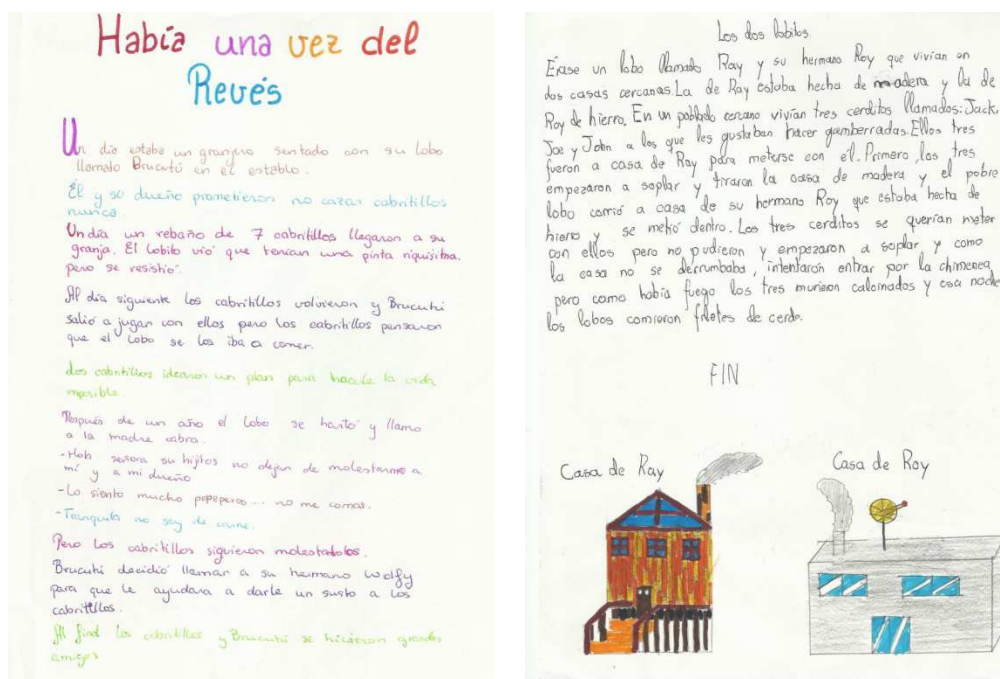 Había una vez del
Revés
Un día estaba un granjero sentado con su lobo
llamado Brucutú en el establo.
Él y su dueño prometieron no cazar cabritillos
nunca.
Un día un rebaño de 7 cabritillos llegaron a su
granja. El lobito vió que tenían una pinta riquísima.
pero se resistió.
Al día siguiente los cabritillos volvieron y Brucutú
salió a jugar con ellos pero los cabritillos pensaron
que el lobo se los iba a comer.
Los cabritillos idearon un plan para hacerle la vida
imposible.
Después de un año el lobo se hartó y llamo
a la madre cabra.
-Hoh señora su hijitos no dejan de molestarme a
mí y a mi dueño
-Lo siento mucho pepeperos... no me comas.
-Tranquila no soy de carne.
Pero los cabritillos siguieron molestadolos.
Brucutú decidió llamar a su hermano Wolfy
para que le ayudara a darle un susto a los
cabritillos.
Al final los cabritillos y Brucutú se hicieron grandes
amigos
Los dos lobitos.
Érase un lobo llamado Ray y su hermano Roy que vivían en
dos casas cercanas. La de Ray estaba hecha de madera y la de
Roy de hierro. En un poblado cercano vivían tres cerditos llamados: Jack,
Joe y John a los que les gustaban hacer gamberradas. Ellos tres
fueron a casa de Ray para meterse con él. Primero, los tres
empezaron a soplar y tiraron la casa de madera y el pobre
lobo corrió a casa de su hermano Roy que estaba hecha de
hierro y se metió dentro. Los tres cerditos se querían meter
con ellos pero no pudieron y empezaron a soplar y como
la casa no se derrumbaba, intentaron entrar por la chimenea
pero como había fuego los tres murieron calcinados y esa noche
los lobos comieron filetes de cerdo.
FIN
Casa de Ray
Casa de Roy